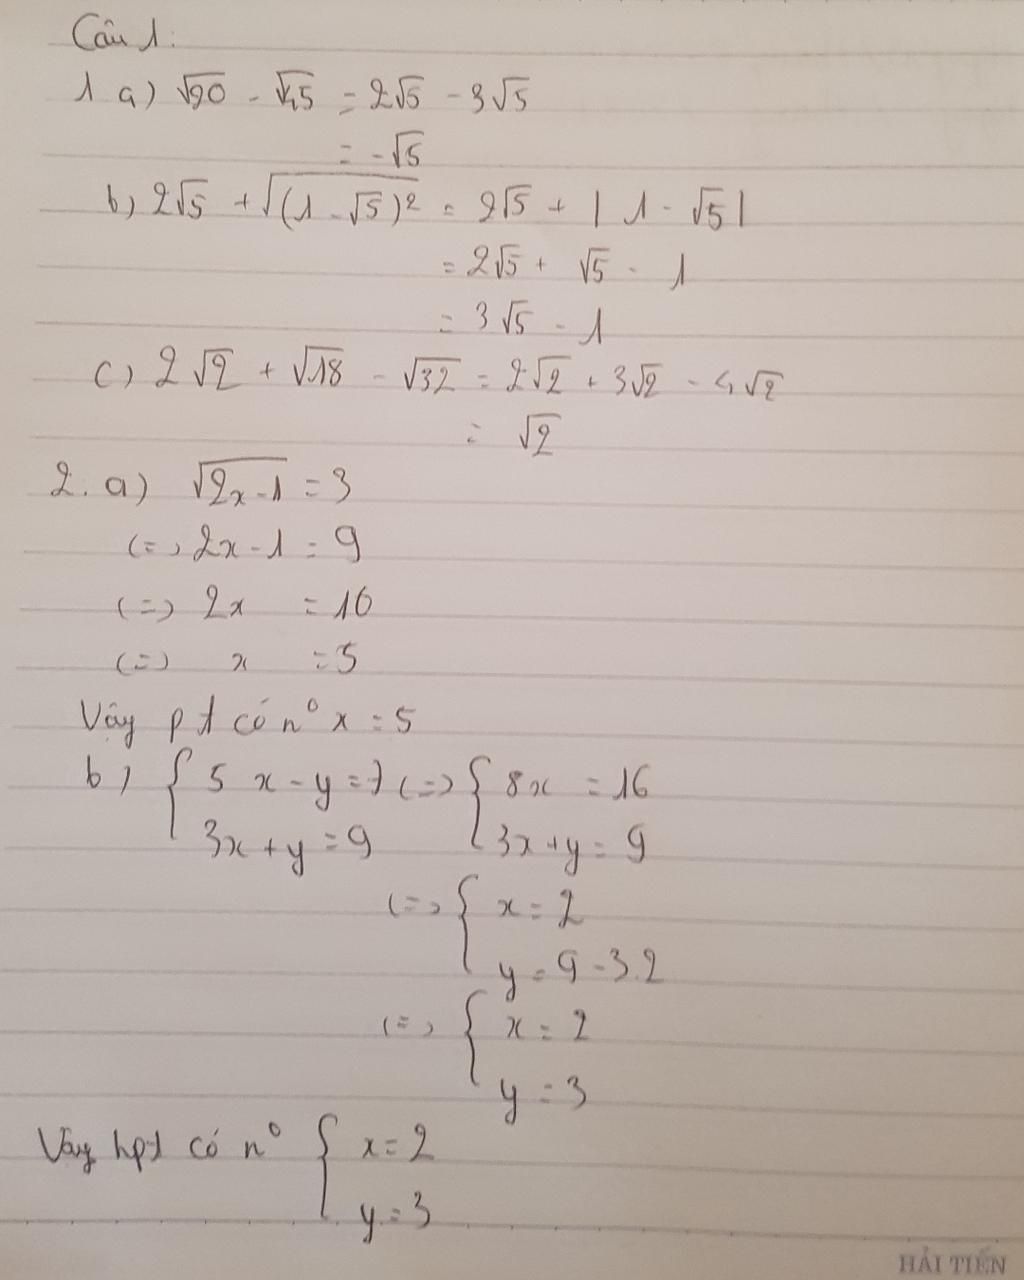 Câu 1:
1 a) √20 - √45 = 2√5 - 3√5
= -√5
b) 2√5 + √(1 - √5)² = 2√5 + |1 - √5|
= 2√5 + √5 - 1
= 3√5 - 1
c) 2√2 + √18 - √32 = 2√2 + 3√2 - 4√2
= √2
2. a) √2x-1 = 3
(=) 2x - 1 = 9
(=) 2x = 10
(=) x = 5
Vậy pt có n⁰ x = 5
b) { 5x - y = 7 (=) { 8x = 16
3x + y = 9 3x + y = 9
(=) { x = 2
y = 9 - 3.2
(=) { x = 2
y = 3
Vậy hpt có n⁰ { x = 2
y = 3
HẢI TIẾN